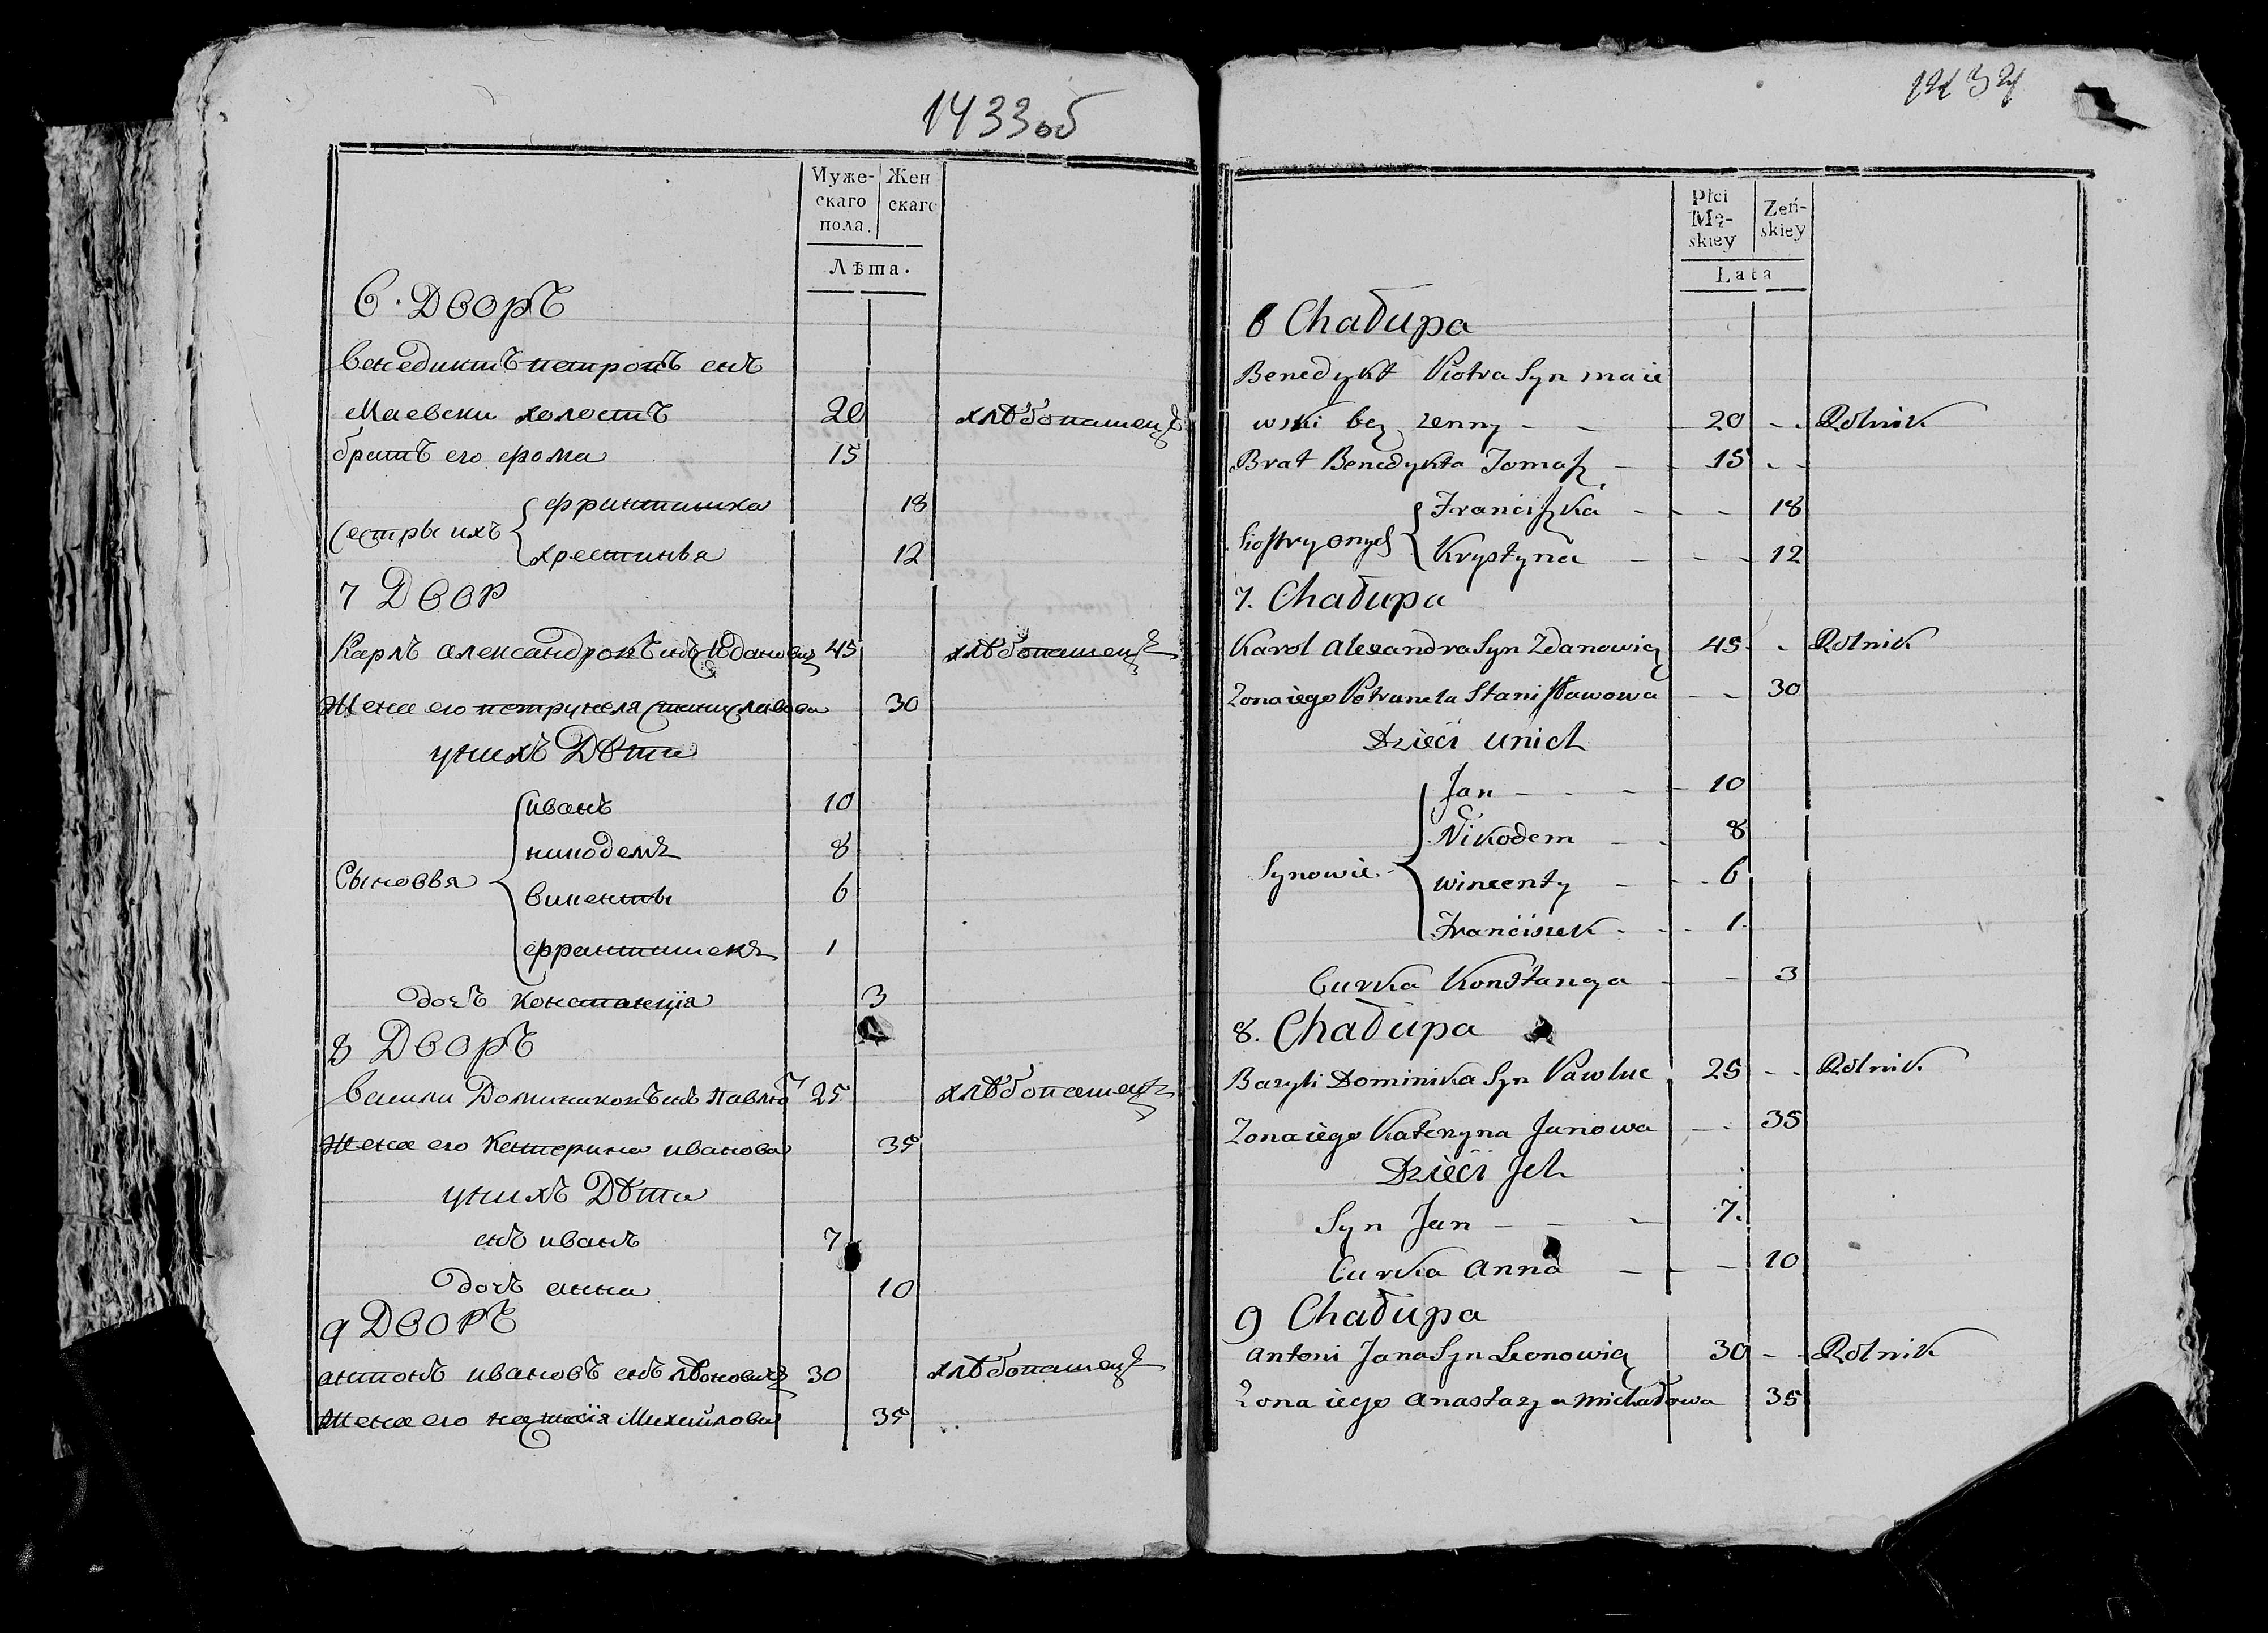 1433об
Муже-
скаго
пола.
Жен
скаго
Лѣта.
6. Дворъ
Бенедиктъ петровъ снъ
Маевски холостъ 20 хлѣбопашецъ
братъ его фома 15
Сестры ихъ
франтишка 18
христинья 12
7 Двор
Карлъ александровъ снъ Жданович 45 хлѣбопашецъ
Жена его петрунеля станиславова 30
у нихъ Дѣти
Сыновья
иванъ 10
никодемъ 8
виненты 6
франтишекъ 1
дочъ констанція 3
8 Дворъ
Васили Доминиковъ снъ Павлюц 25 хлѣбопашецъ
Жена его Катерина иванова 35
у нихъ Дѣти
снъ иванъ 7
дочъ анна 10
9 Дворъ
антонъ ивановъ снъ лѣоновичъ 30 хлѣбопашецъ
Жена его настасія Михайлова 35
1434
Płci
Mę-
skiey
Żeń-
skiey
Lata
6 Chałupa
Benedykt Piotra Syn maie
wski bez zenny 20 Rolnik
Brat Benedykta Tomasz 15
Siostry onych
Franciszka 18
Krystyna 12
7. Chałupa
Karol Alexandra Syn Zdanowicz 45 Rolnik
Zona iego Petrunela Stanisławowa 30
Dzieci u nich
Synowie
Jan 10
Nikodem 8
wincenty 6
Franciszek 1
Curka Konstanzya 3
8. Chałupa
Bazyli Dominika Syn Pawluc 25 Rolnik
Zona iego Kateryna Janowa 35
Dzieci Jch
Syn Jan 7.
Curka anna 10
9 Chałupa
antoni Jana Syn Leonowicz 30 Rolnik
Zona iego anastazya michałowa 35